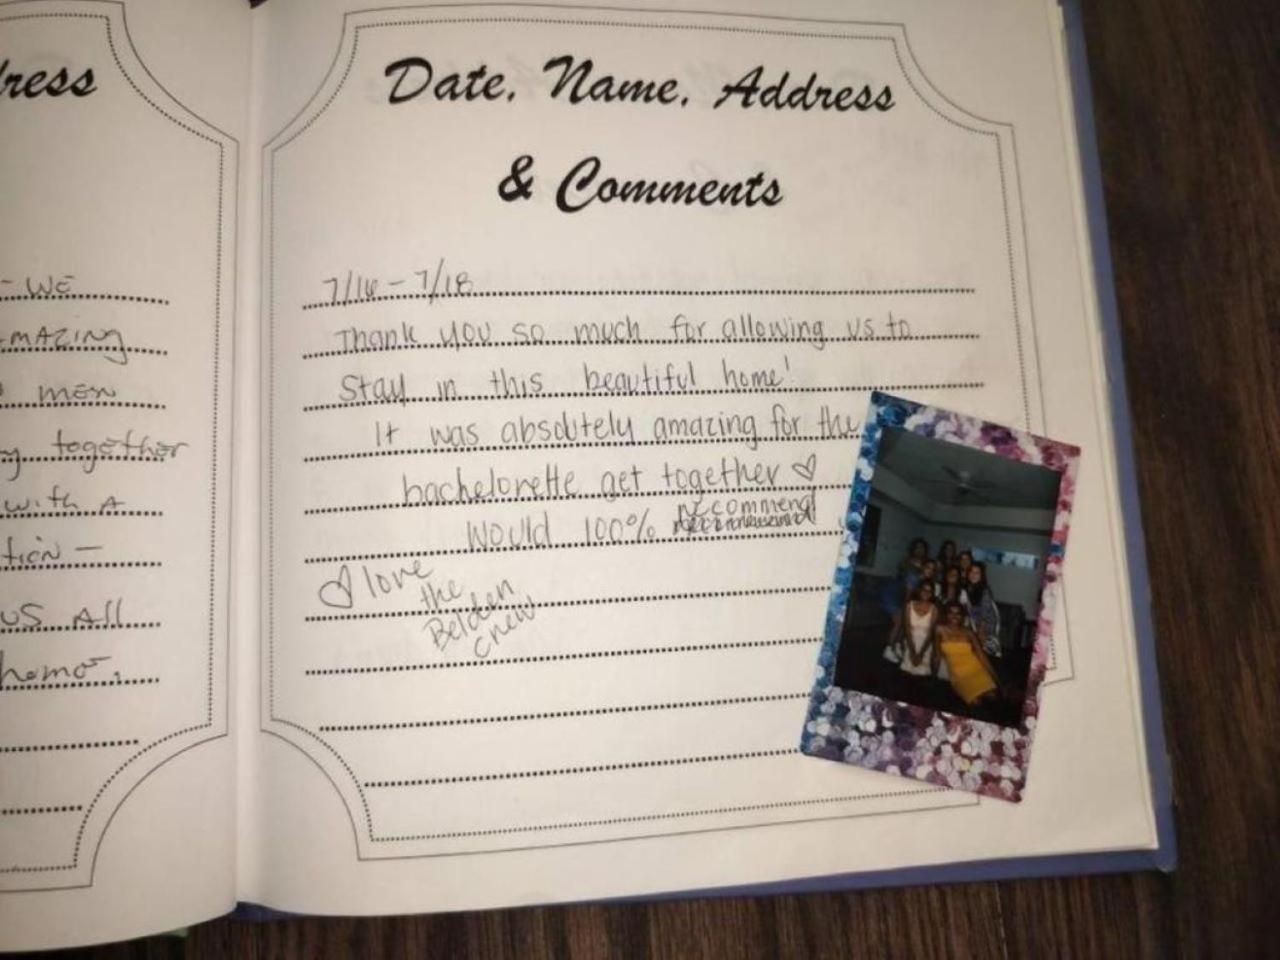 ress
- WE
AMAZING
men
together
with A
tion -
US All
home.
Date, Name, Address
& Comments
7/16 - 7/18
Thank you so much for allowing us to
stay in this beautiful home!
It was absolutely amazing for the
bachelorette get together ♡
Would 100% recommend
♡ love
the
Belden
crew